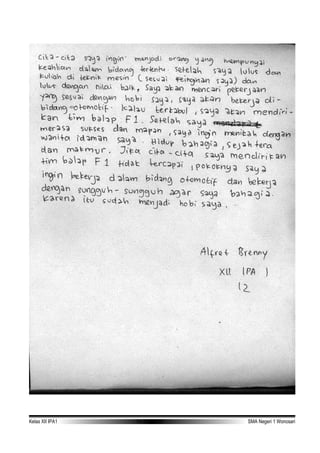 cita-cita saya ingin menjadi orang yang mempunyai
keahlian dalam bidang tertentu. setelah saya lulus dari
kuliah di teknik mesin (sesuai keinginan saya) dan
lulus dengan nilai baik, saya akan mencari pekerjaan
yang sesuai dengan hobi saya, saya akan bekerja di-
bidang otomotif. kalau terkabul, saya akan mendiri-
kan tim balap F1. Setelah saya
merasa sukses dan mapan, saya ingin menikah dengan
wanita idaman saya. Hidup bahagia, sejahtera
dan makmur. Jika cita-cita saya mendirikan
tim balap F1 tidak tercapai, pokoknya saya
ingin bekerja dalam bidang otomotif dan bekerja
dengan sungguh-sungguh agar saya bahagia.
karena itu sudah menjadi hobi saya.
Alfret Brenny
XII IPA 1
12
Kelas XII IPA1 SMA Negeri 1 Wonosari